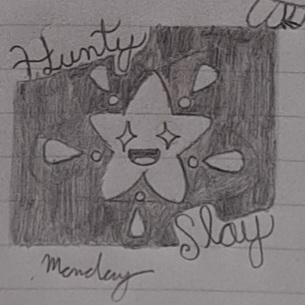 Hunty
Slay
Monday